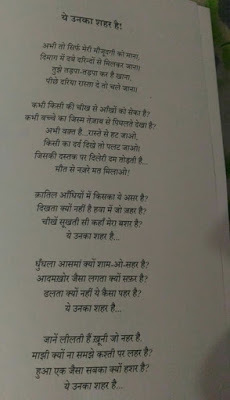 ये उनका शहर है!
अभी तो सिर्फ मेरी मौजूदगी को माना,
दिमाग में दबे दरिन्दों से मिलकर जाना।
तुझे तड़पा-तड़पा कर है खाना,
पीछे दरिया रास्ता दे तो चले जाना।
कभी किसी की चीख से आँखों को सेंका है?
कभी बच्चे का जिस्म तेज़ाब से पिघलते देखा है?
अभी वक़्त है...रास्ते से हट जाओ,
किसी का दर्द दिखे तो पलट जाओ!
जिसकी दस्तक पर दिलेरी दम तोड़ती है...
मौत से नज़रे मत मिलाओ!
क़ातिल आँधियों में किसका ये असर है?
दिखता क्यों नहीं है हवा में जो ज़हर है?
चीखें सूखती सी कहाँ मेरा बशर है?
ये उनका शहर है...
धुँधला आसमां क्यों शाम-ओ-सहर है?
आदमख़ोर जैसा लगता क्यों सफ़र है?
ढलता क्यों नहीं ये कैसा पहर है?
ये उनका शहर है...
जानें लीलती हैं ख़ूनी जो नहर है,
माझी क्यों ना समझे कश्ती पर लहर है?
हुआ एक जैसा सबका क्यों हशर है?
ये उनका शहर है...